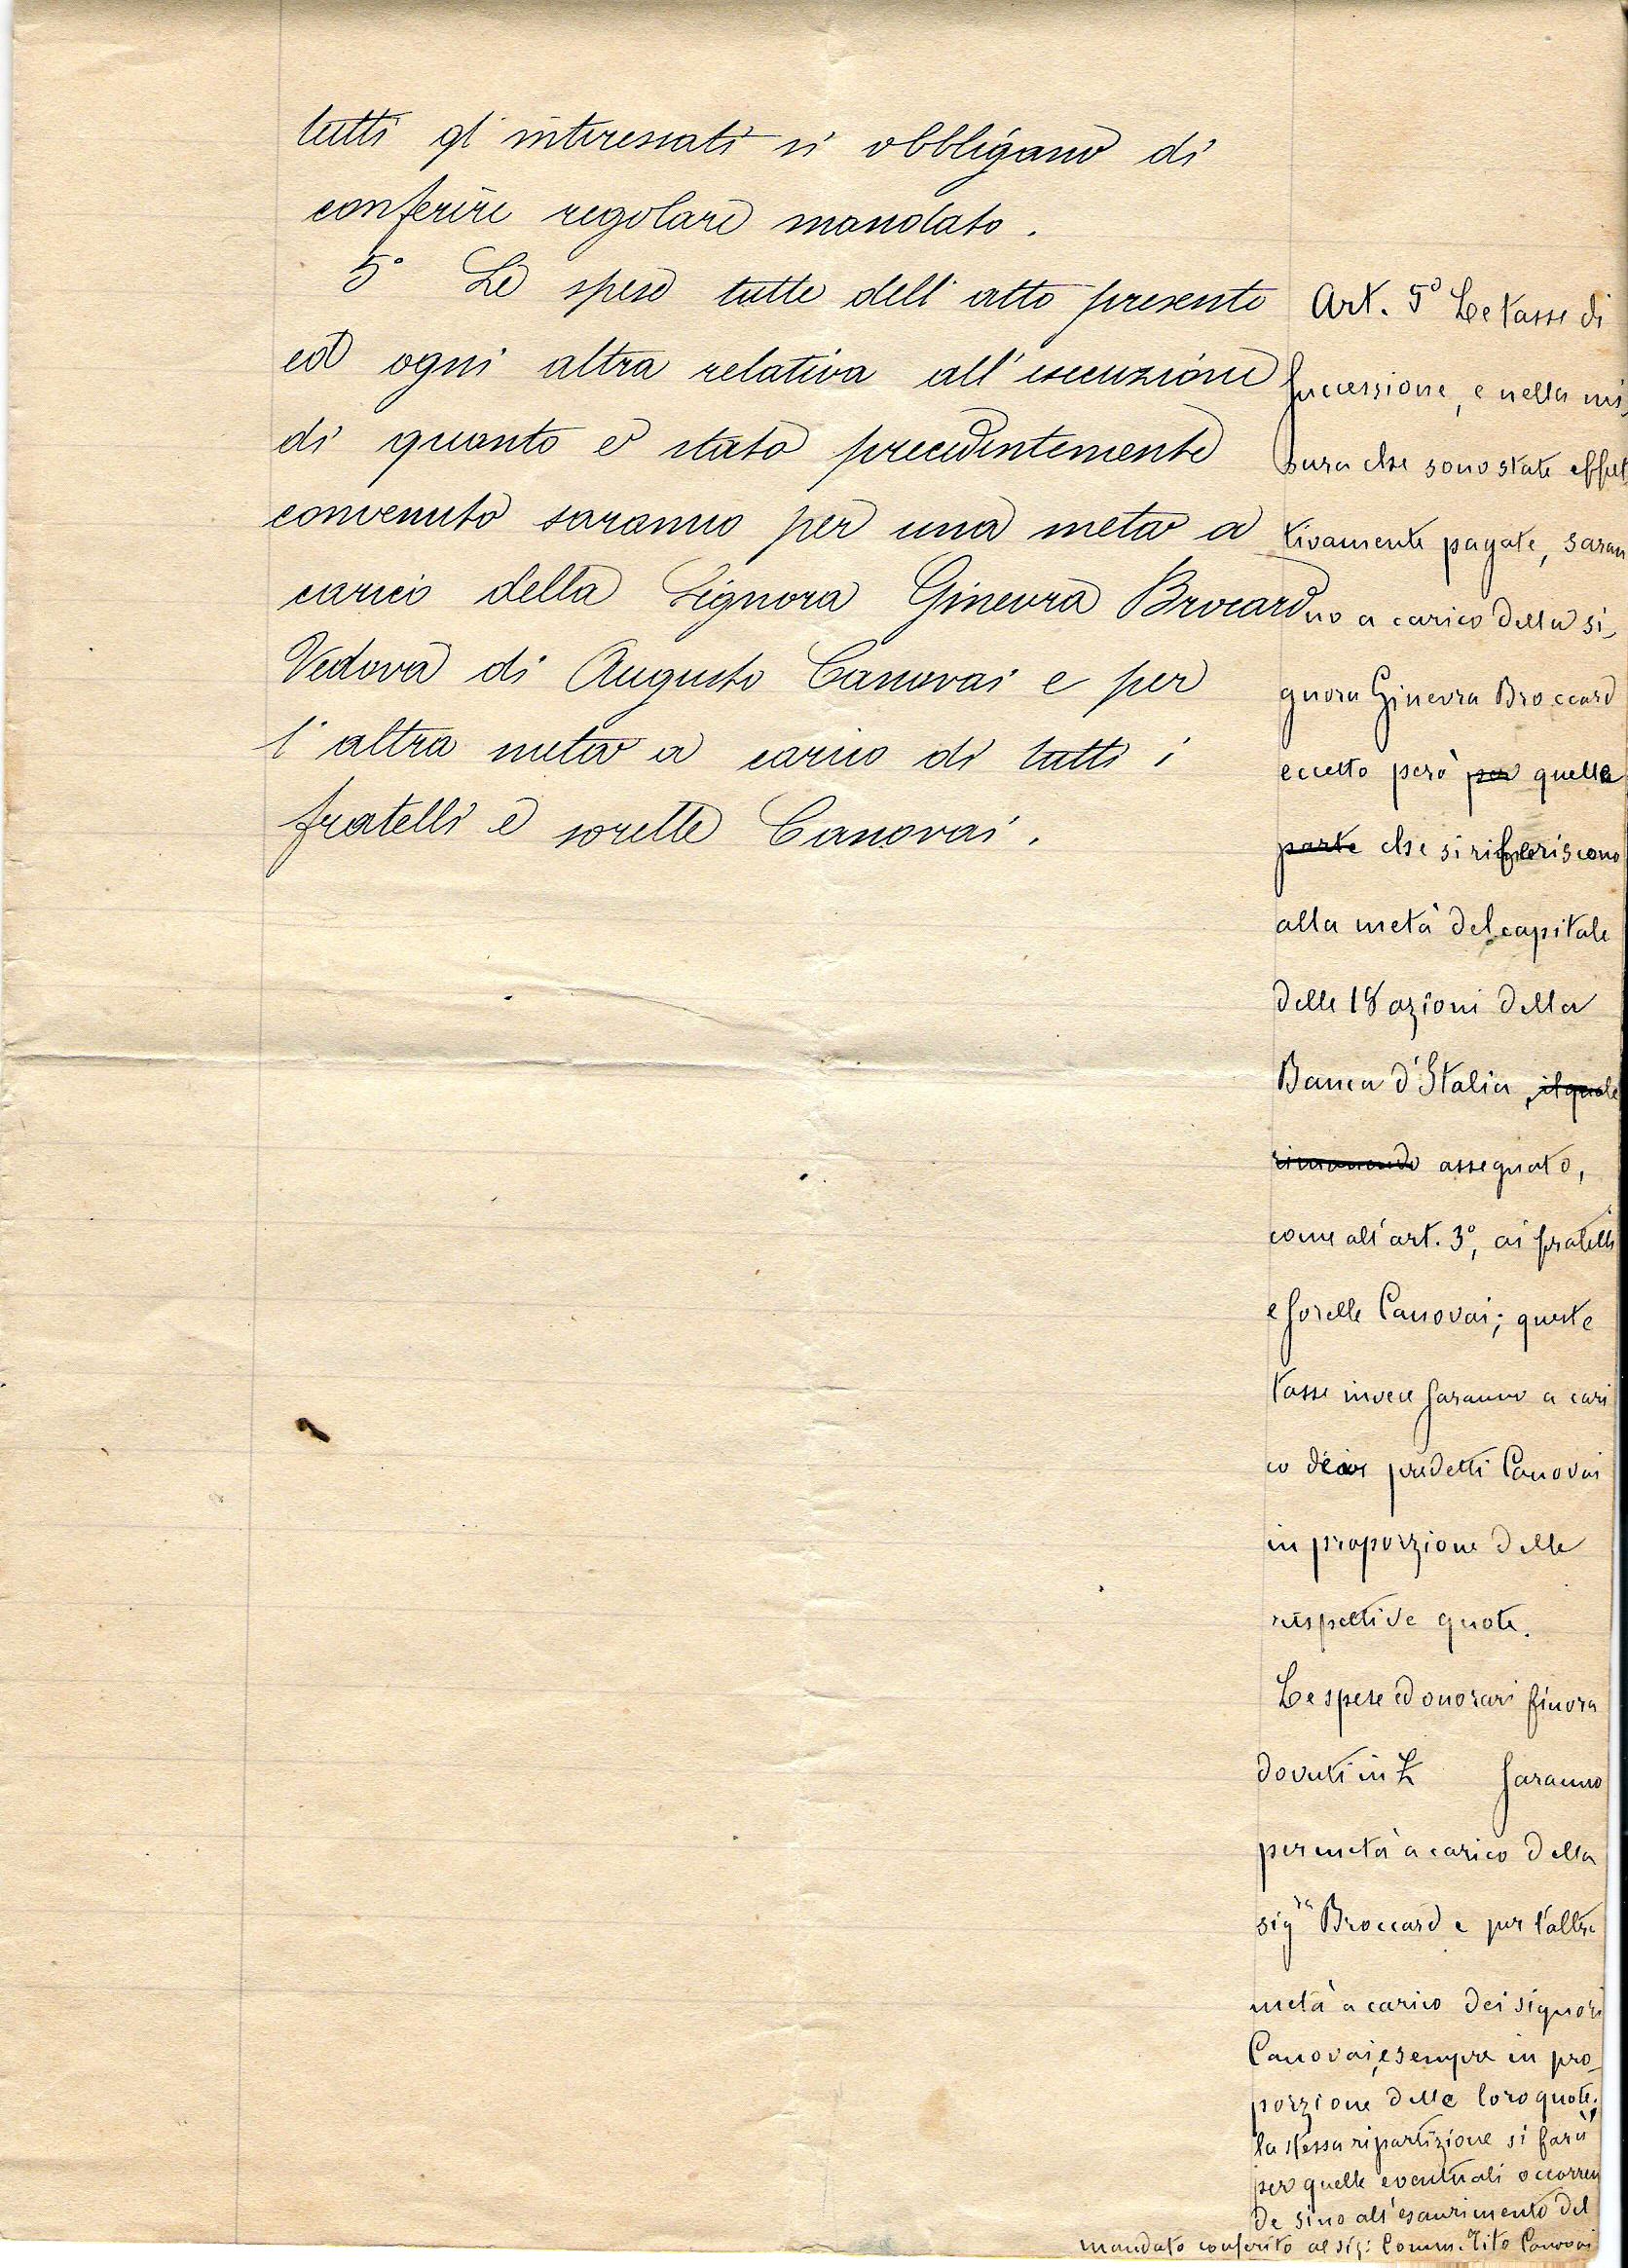 tutti gl' interessati si obbligano di
conferire regolare mandato.
5° Le spese tutte dell' atto presente
ed ogni altra relativa all' esecuzione
di quanto è stato precedentemente
convenuto saranno per una metà a
carico della Signora Ginevra Brocard
Vedova di Augusto Canovai e per
l' altra metà a carico di tutti i
fratelli e sorelle Canovai.
Art. 5° Le tasse di
successione, e nella mi-
sura che sono state effet
tivamente pagate, saran
no a carico della si-
gnora Ginevra Broccard
eccetto però per quelle
parte che si riferiscono
alla metà del capitale
delle 18 azioni della
Banca d'Italia, il quale
rimanendo assegnato,
come all'art. 3°, ai fratelli
e sorelle Canovai; queste
tasse invece saranno a cari
co dei predetti Canovai
in proporzione delle
rispettive quote.
Le spese ed onorari finora
dovuti in L saranno
per metà a carico della
sigra Broccard e per l'altra
metà a carico dei signori
Canovai, e sempre in pro-
porzione delle loro quote;
la stessa ripartizione si farà
per quelle eventuali occorren
de sino all'esaurimento del
mandato conferito al sig: Comm. Tito Canovai